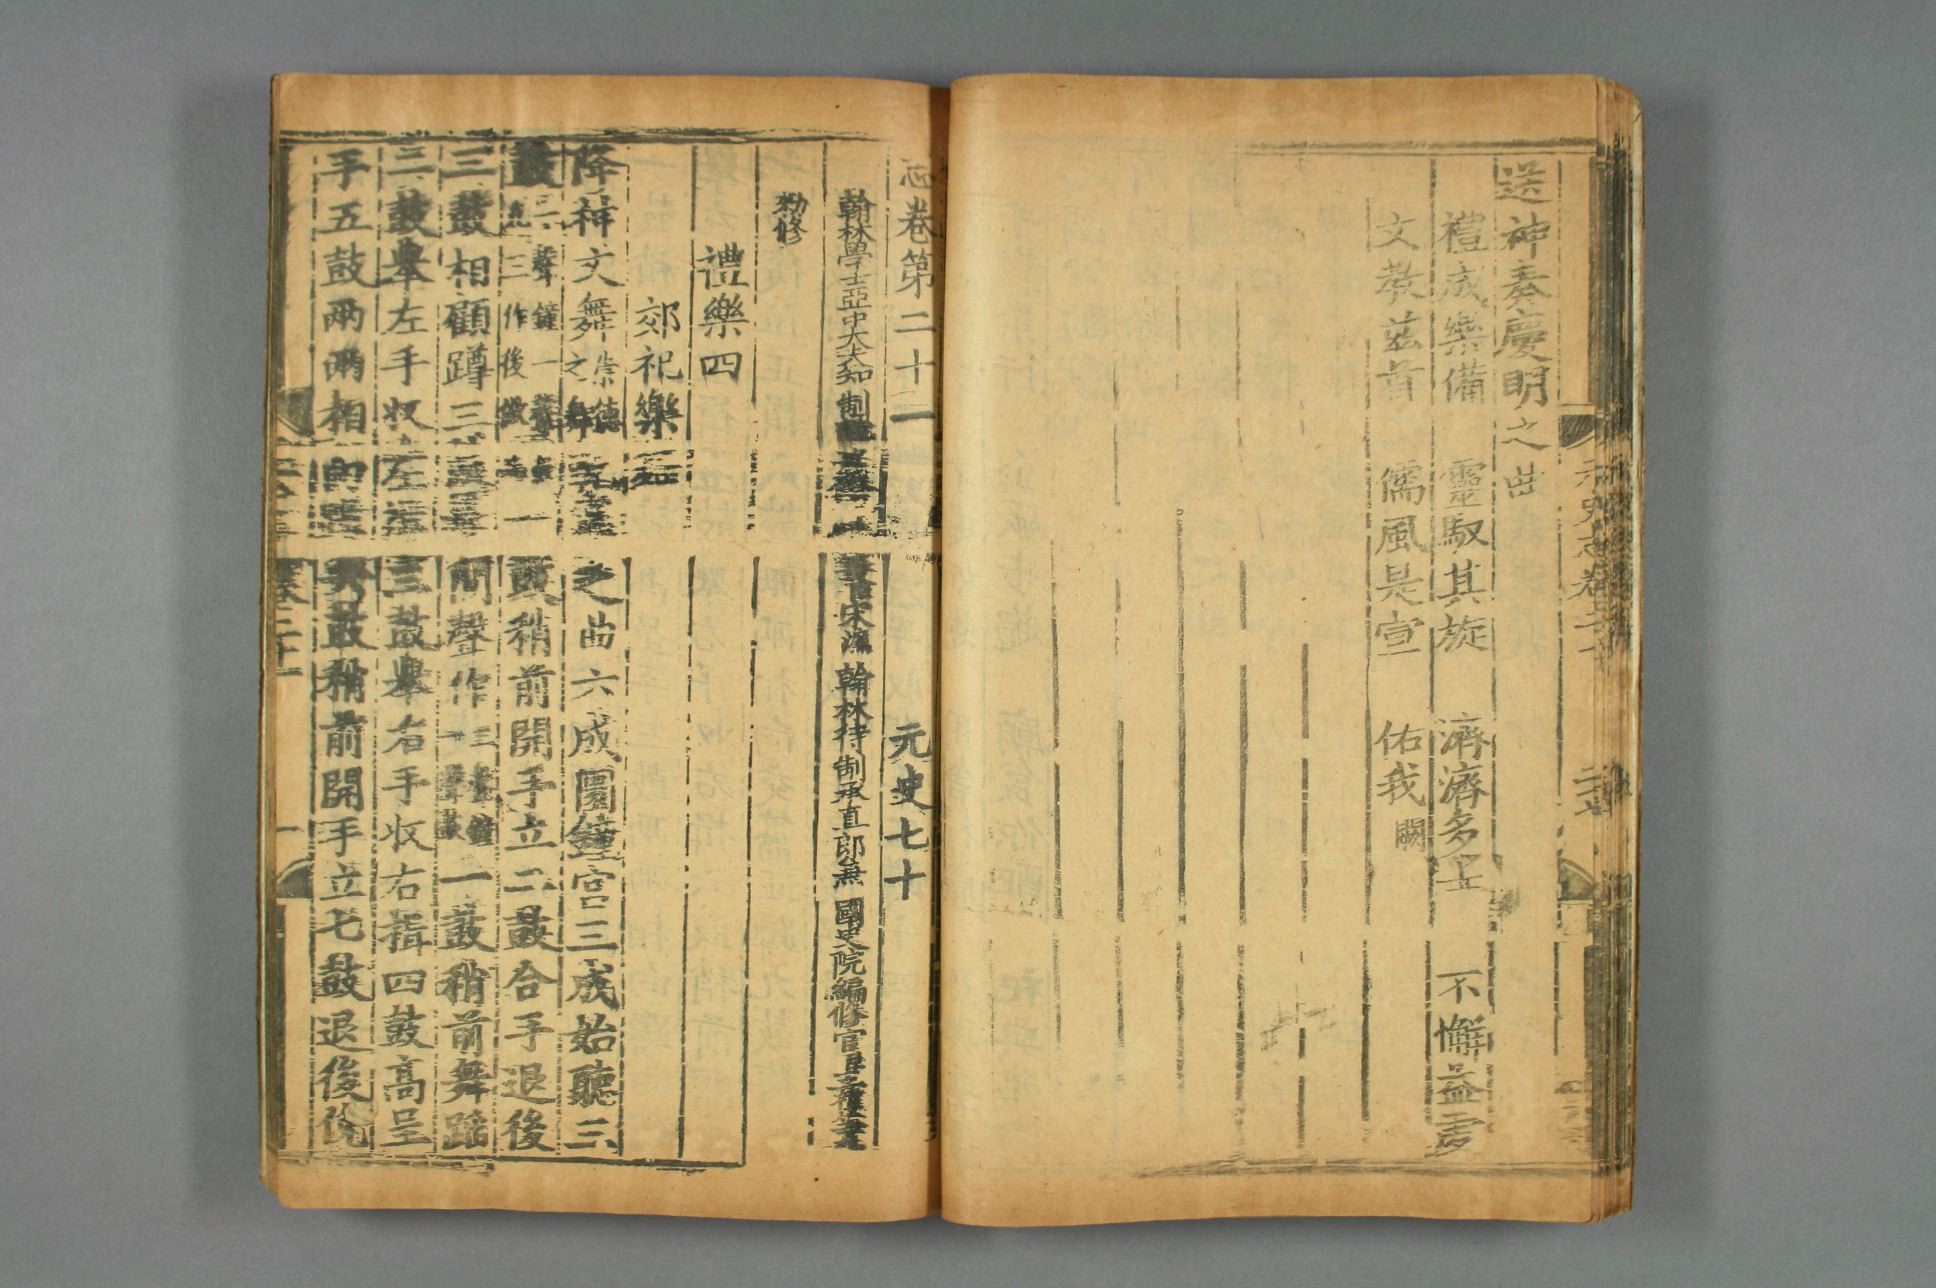 送神奏慶明之曲
禮成樂備 靈馭其旋 濟濟多士 不懈益虔
文教茲首 儒風是宣 佑我闕
元史志卷二十一
志卷第二十二 元史七十
翰林學士亞中大夫知制 宋濂 翰林待制承直郎兼 國史院編修官
勑修
禮樂四
郊祀樂舞
降神文舞崇德之舞 之曲六成圜鐘宮三成始聽三
鼓一聲鐘一聲 三作後 一鼓稍前開手立二鼓合手退後
三鼓相顧蹲三鼓畢間聲作一鼓稍前舞蹈
二鼓舉左手収左揖三鼓舉右手収右揖四鼓高呈
手五鼓兩兩相向 鼓稍前開手立七鼓退後俛